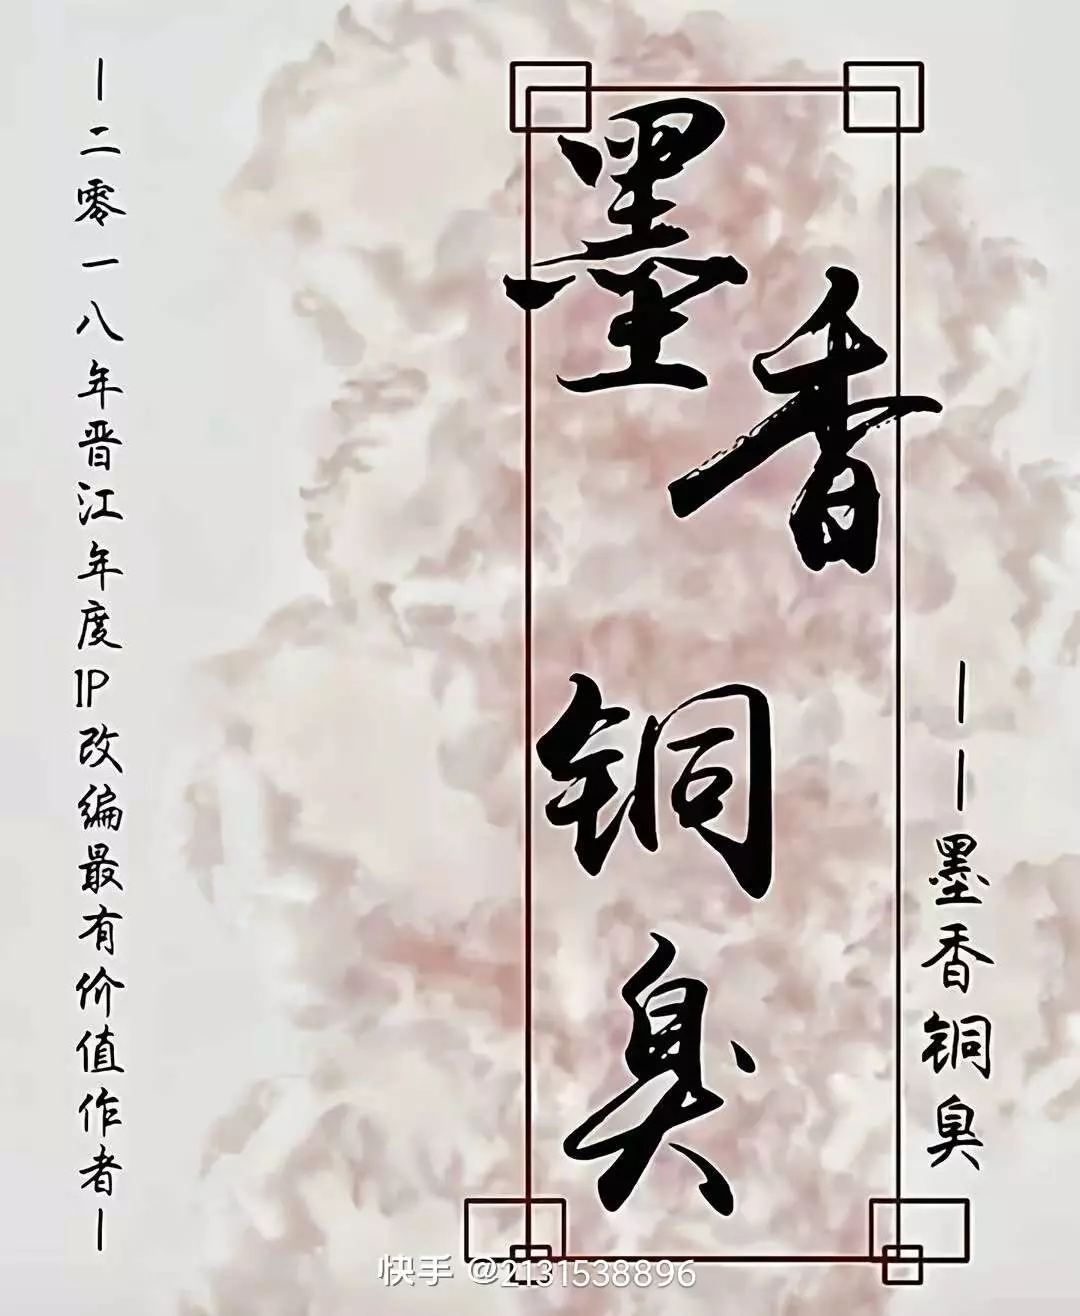 一二零一八年晋江年度IP改编最有价值作者一
墨香铜臭
——墨香铜臭
快手 @2131538896